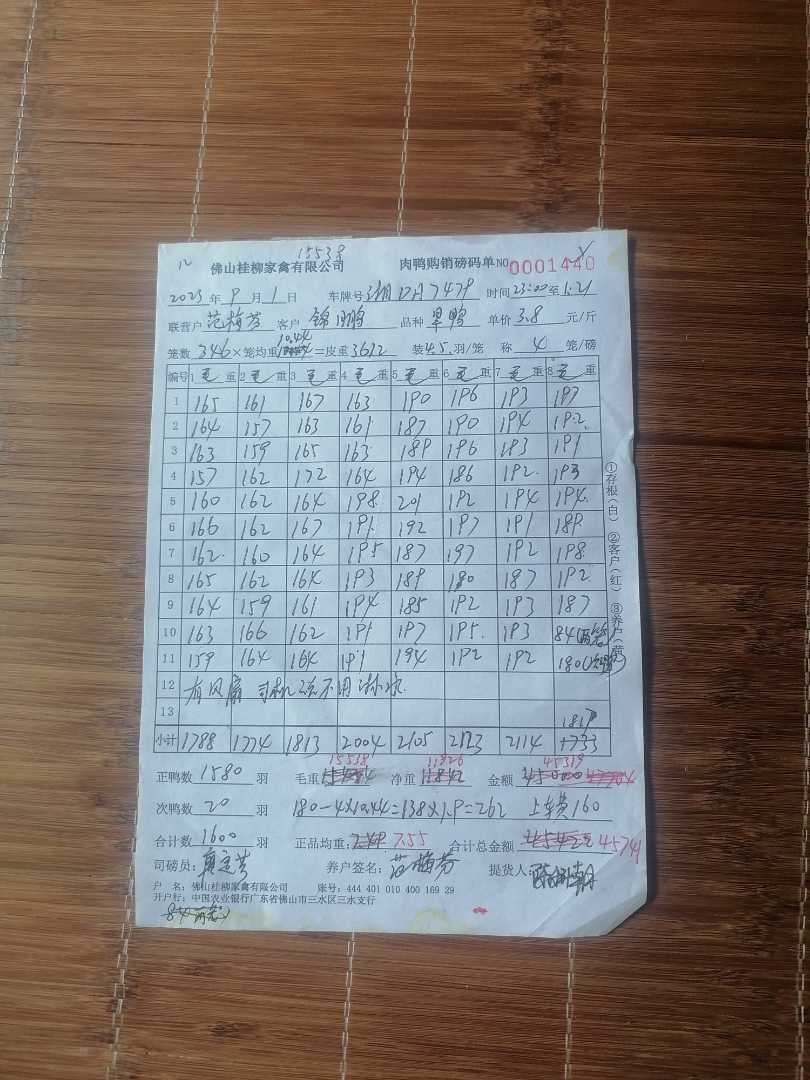 12 15538
佛山桂柳家禽有限公司 肉鸭购销磅码单 NO 0001440
2023年9月1日 车牌号 7479 时间23:00至1:21
联营户 范梅芬 客户 锦鹏 品种 旱鸭 单价 3.8 元/斤
笼数 346×笼均重 10.44 =皮重 3612 装 4.5 羽/笼 称 4 笼/磅
编号 1 毛重 2 毛重 3 毛重 4 毛重 5 毛重 6 毛重 7 毛重 8 毛重
1 165 161 167 163 190 196 193 197
2 164 157 163 161 187 190 194 192
3 163 159 165 163 189 196 193 191
4 157 162 172 164 194 186 192 193
5 160 162 164 198 201 192 194 194
6 166 162 167 191 192 197 191 189
7 162 160 164 195 187 197 192 198
8 165 162 164 193 189 180 187 192
9 164 159 161 194 185 192 193 187
10 163 166 162 191 197 195 193 84(两笼)
11 159 164 164 191 194 192 192 180
12 有风扇 不用淋水
13 1817
小计 1788 1774 1813 2004 2105 2123 2114 +733
①存根(白) ②客户(红) ③养户(黄)
15538 11926 45319
正鸭数 1580 羽 毛重 净重 11842 金额
次鸭数 20 羽 180-4×10.44=138×1.9=262 上车费160
合计数 1600 羽 正品均重: 7.55 合计总金额 45741
司磅员: 养户签名: 范梅芬 提货人:
户 名: 佛山桂柳家禽有限公司 账号: 444 401 010 400 169 29
开户行: 中国农业银行广东省佛山市三水区三水支行
84(两笼)